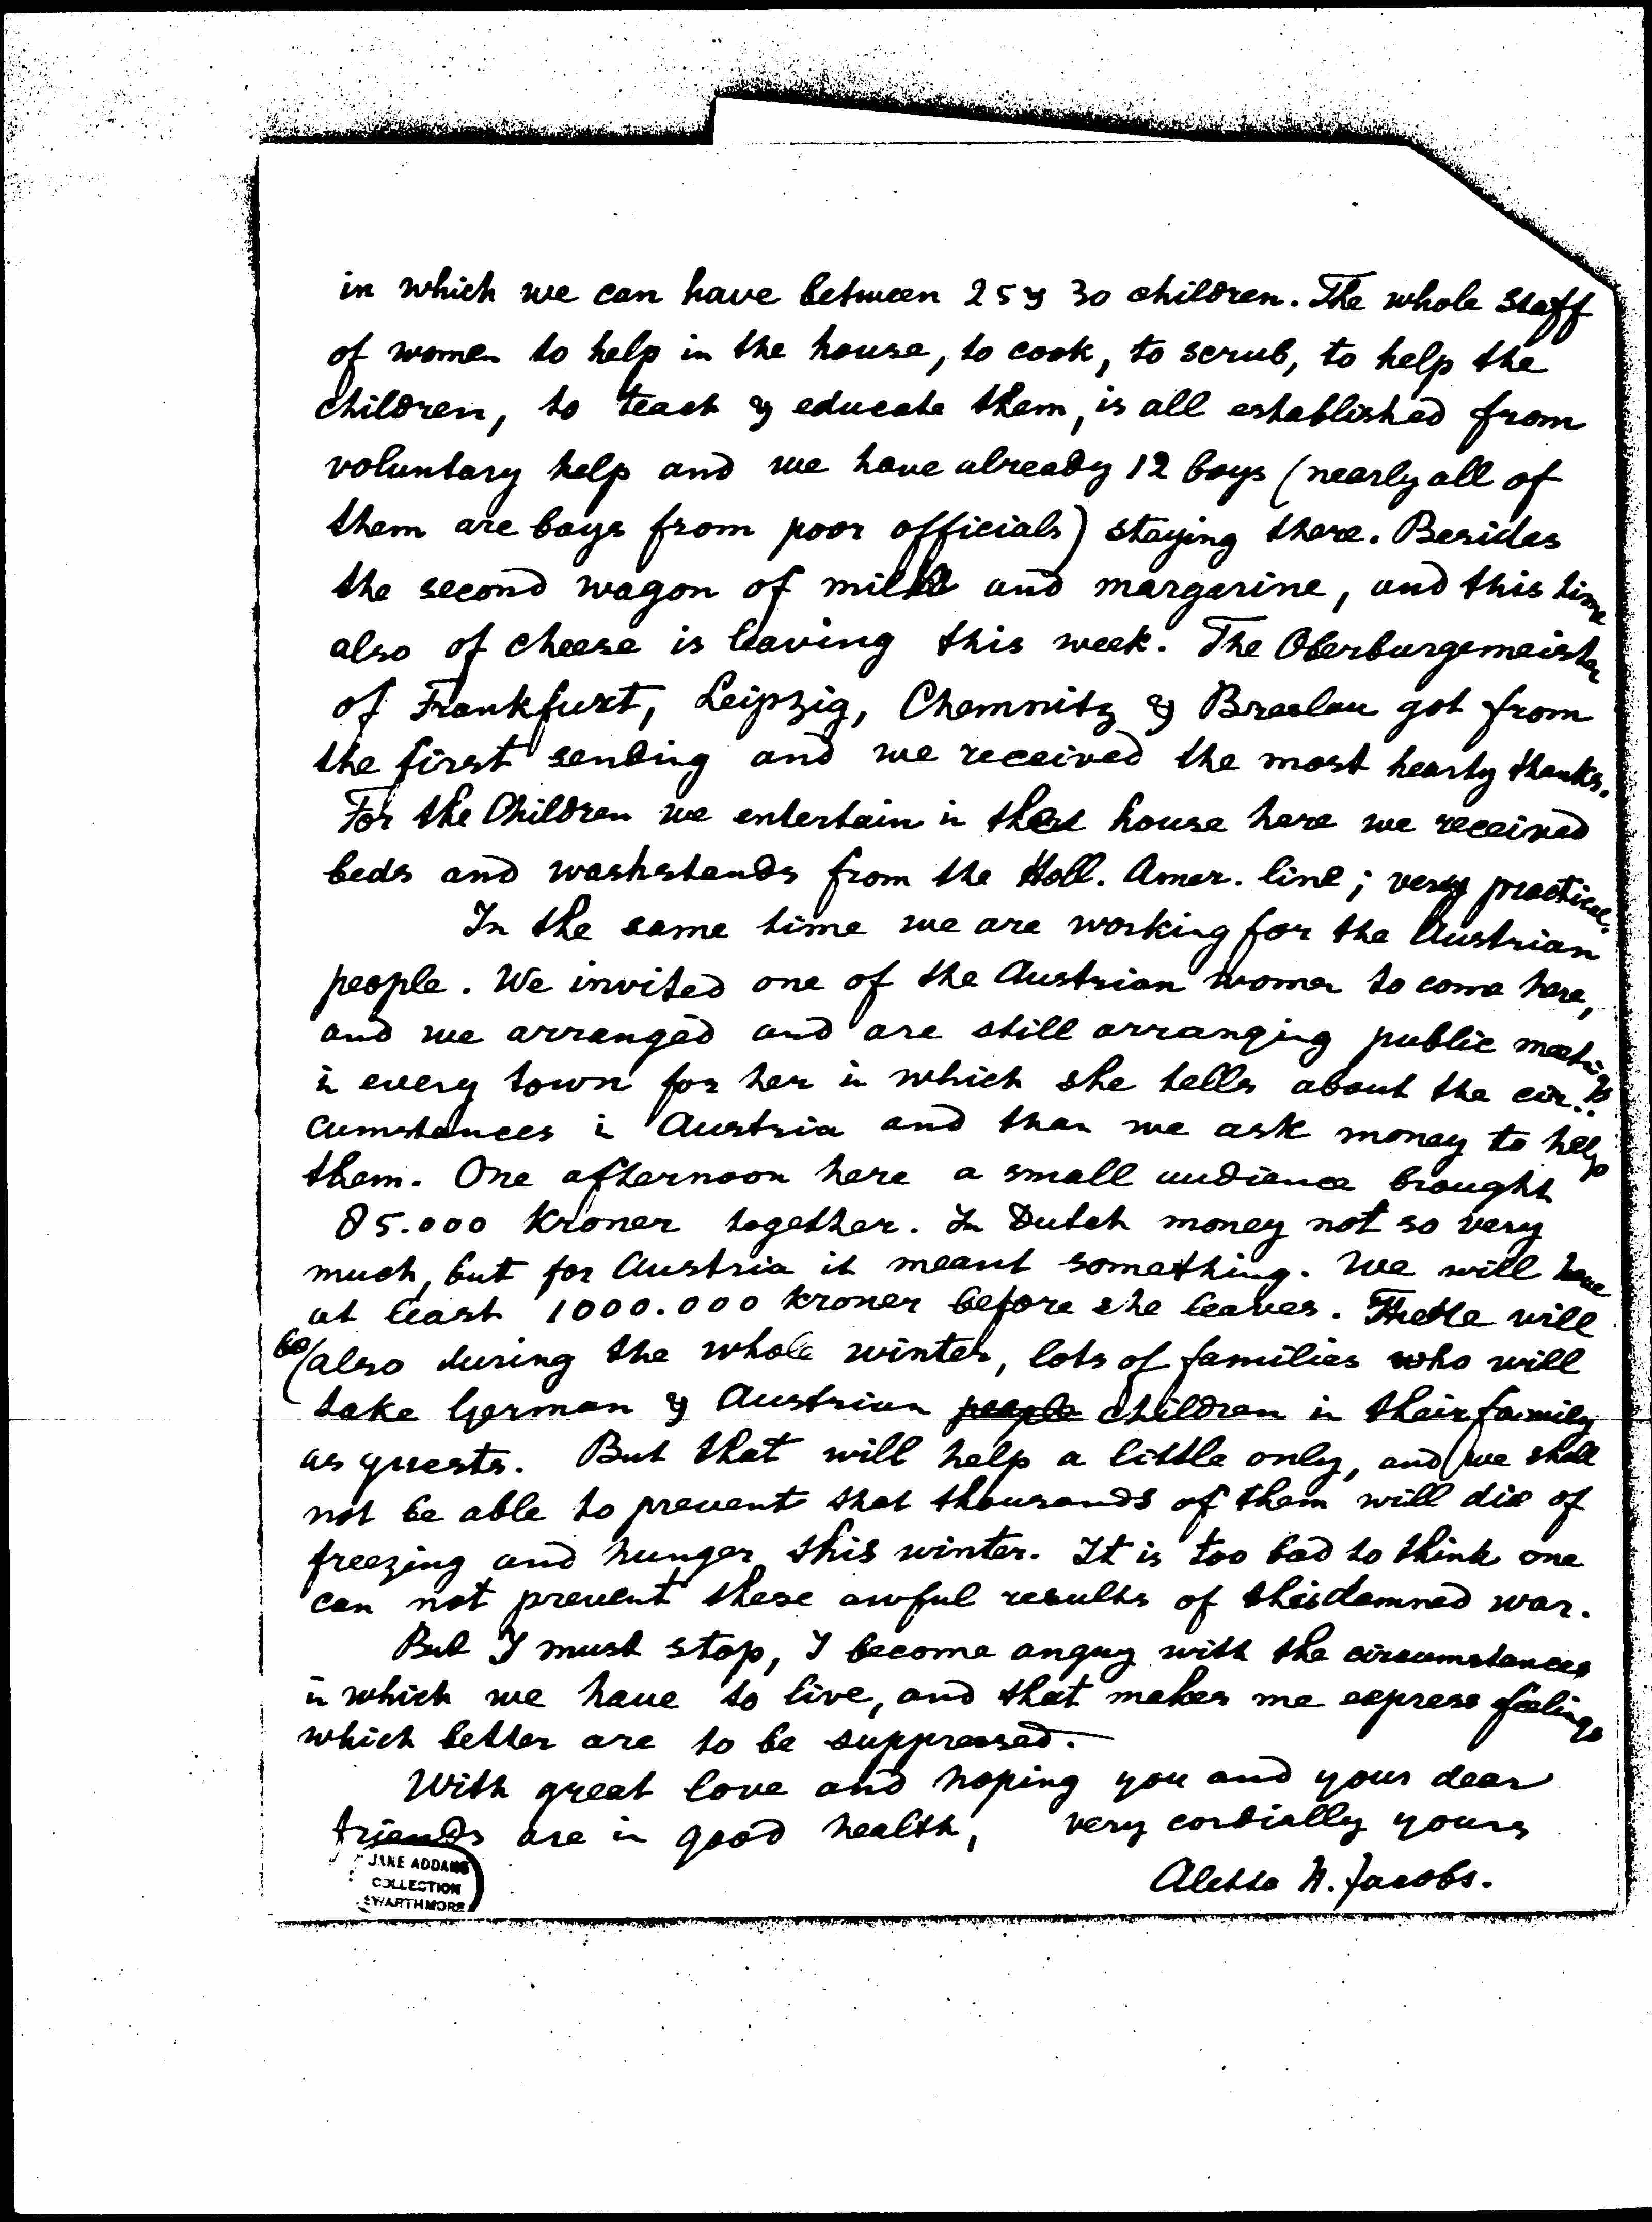 in which we can have between 25 & 30 children. The whole staff
of women to help in the house, to cook, to scrub, to help the
children, to teach & educate them, is all established from
voluntary help and we have already 12 boys (nearly all of
them are boys from poor officials) staying there. Besides
the second wagon of milk and margarine, and this time
also of cheese is leaving this week. The Oberburgemeister
of Frankfurt, Leipzig, Chemnitz & Breslau got from
the first sending and we received the most hearty thanks.
For the Children we entertain in the house here we received
beds and washstands from the Holl. Amer. line; very practical.
In the same time we are working for the Austrian
people. We invited one of the Austrian women to come here,
and we arranged and are still arranging public meetings
in every town for her in which she tells about the cir-
cumstances in Austria and than we ask money to help
them. One afternoon here a small audience brought
85.000 Kroner together. In Dutch money not so very
much, but for Austria it meant something. We will have
at least 1000.000 kroner before she leaves. There will
be also during the whole winter, lots of families who will
take German & Austrian people children in their family
as guests. But that will help a little only, and we shall
not be able to prevent that thousands of them will die of
freezing and hunger this winter. It is too bad to think one
can not prevent these awful results of this damned war.
But I must stop, I become angry with the circumstances
in which we have to live, and that makes me express feelings
which better are to be suppressed.
With great love and hoping you and your dear
friends are in good health, very cordially yours
Aletta H. Jacobs.
JANE ADDAMS
COLLECTION
SWARTHMORE